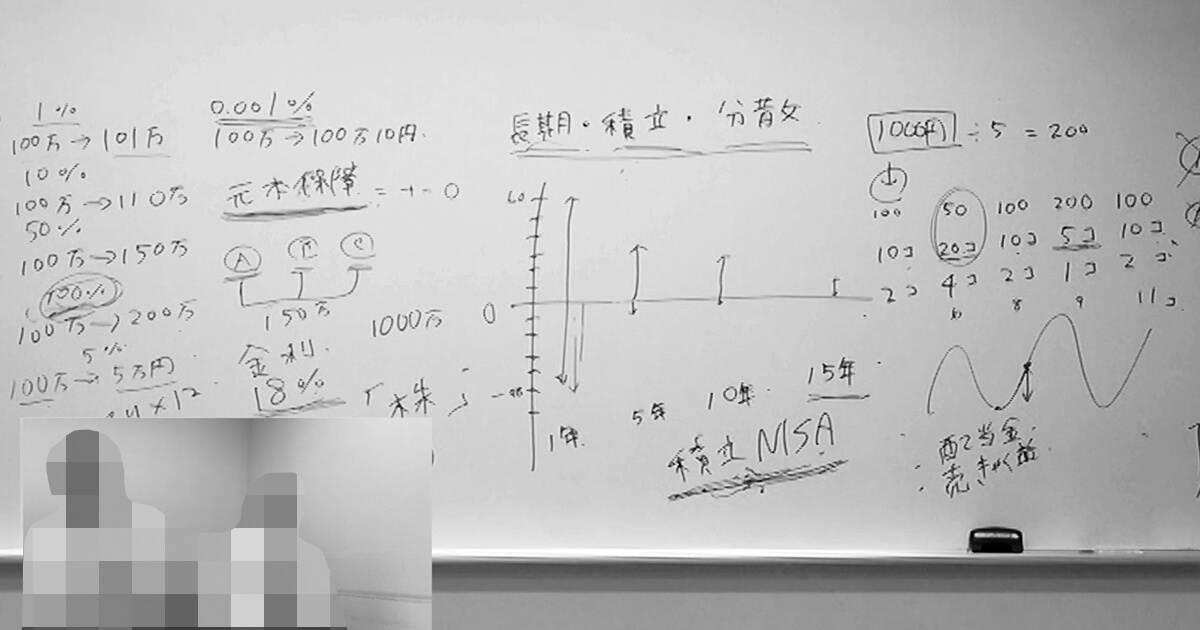 1%
100万→101万
10%
100万→110万
50%
100万→150万
100%
100万→200万
5%
100万→5万円
0.001%
100万→100万10円
元本保障=+-0
A B C
150万
金利
18%
1000万
「株」
長期・積立・分散
0
1年
5年
10年
15年
積立NISA
1000円÷5=200
100 50 100 200 100
10コ 20コ 10コ 5コ 10コ
2コ 4コ 2コ 1コ 2コ
8 9 11コ
配当金
売却益